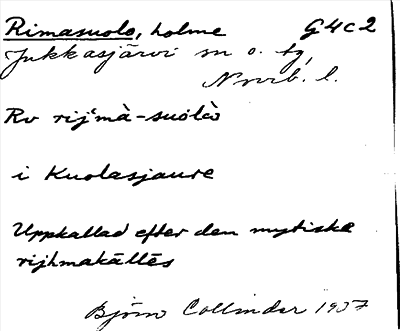 Rimasuolo, holme G4c2
Jukkasjärvi sn o. tg,
Norrb. l.
Rv rijˈmà-suolò
i Kuolasjaure
Uppkallad efter den mytiske
rijhmakállēs
Björn Collinder 1937